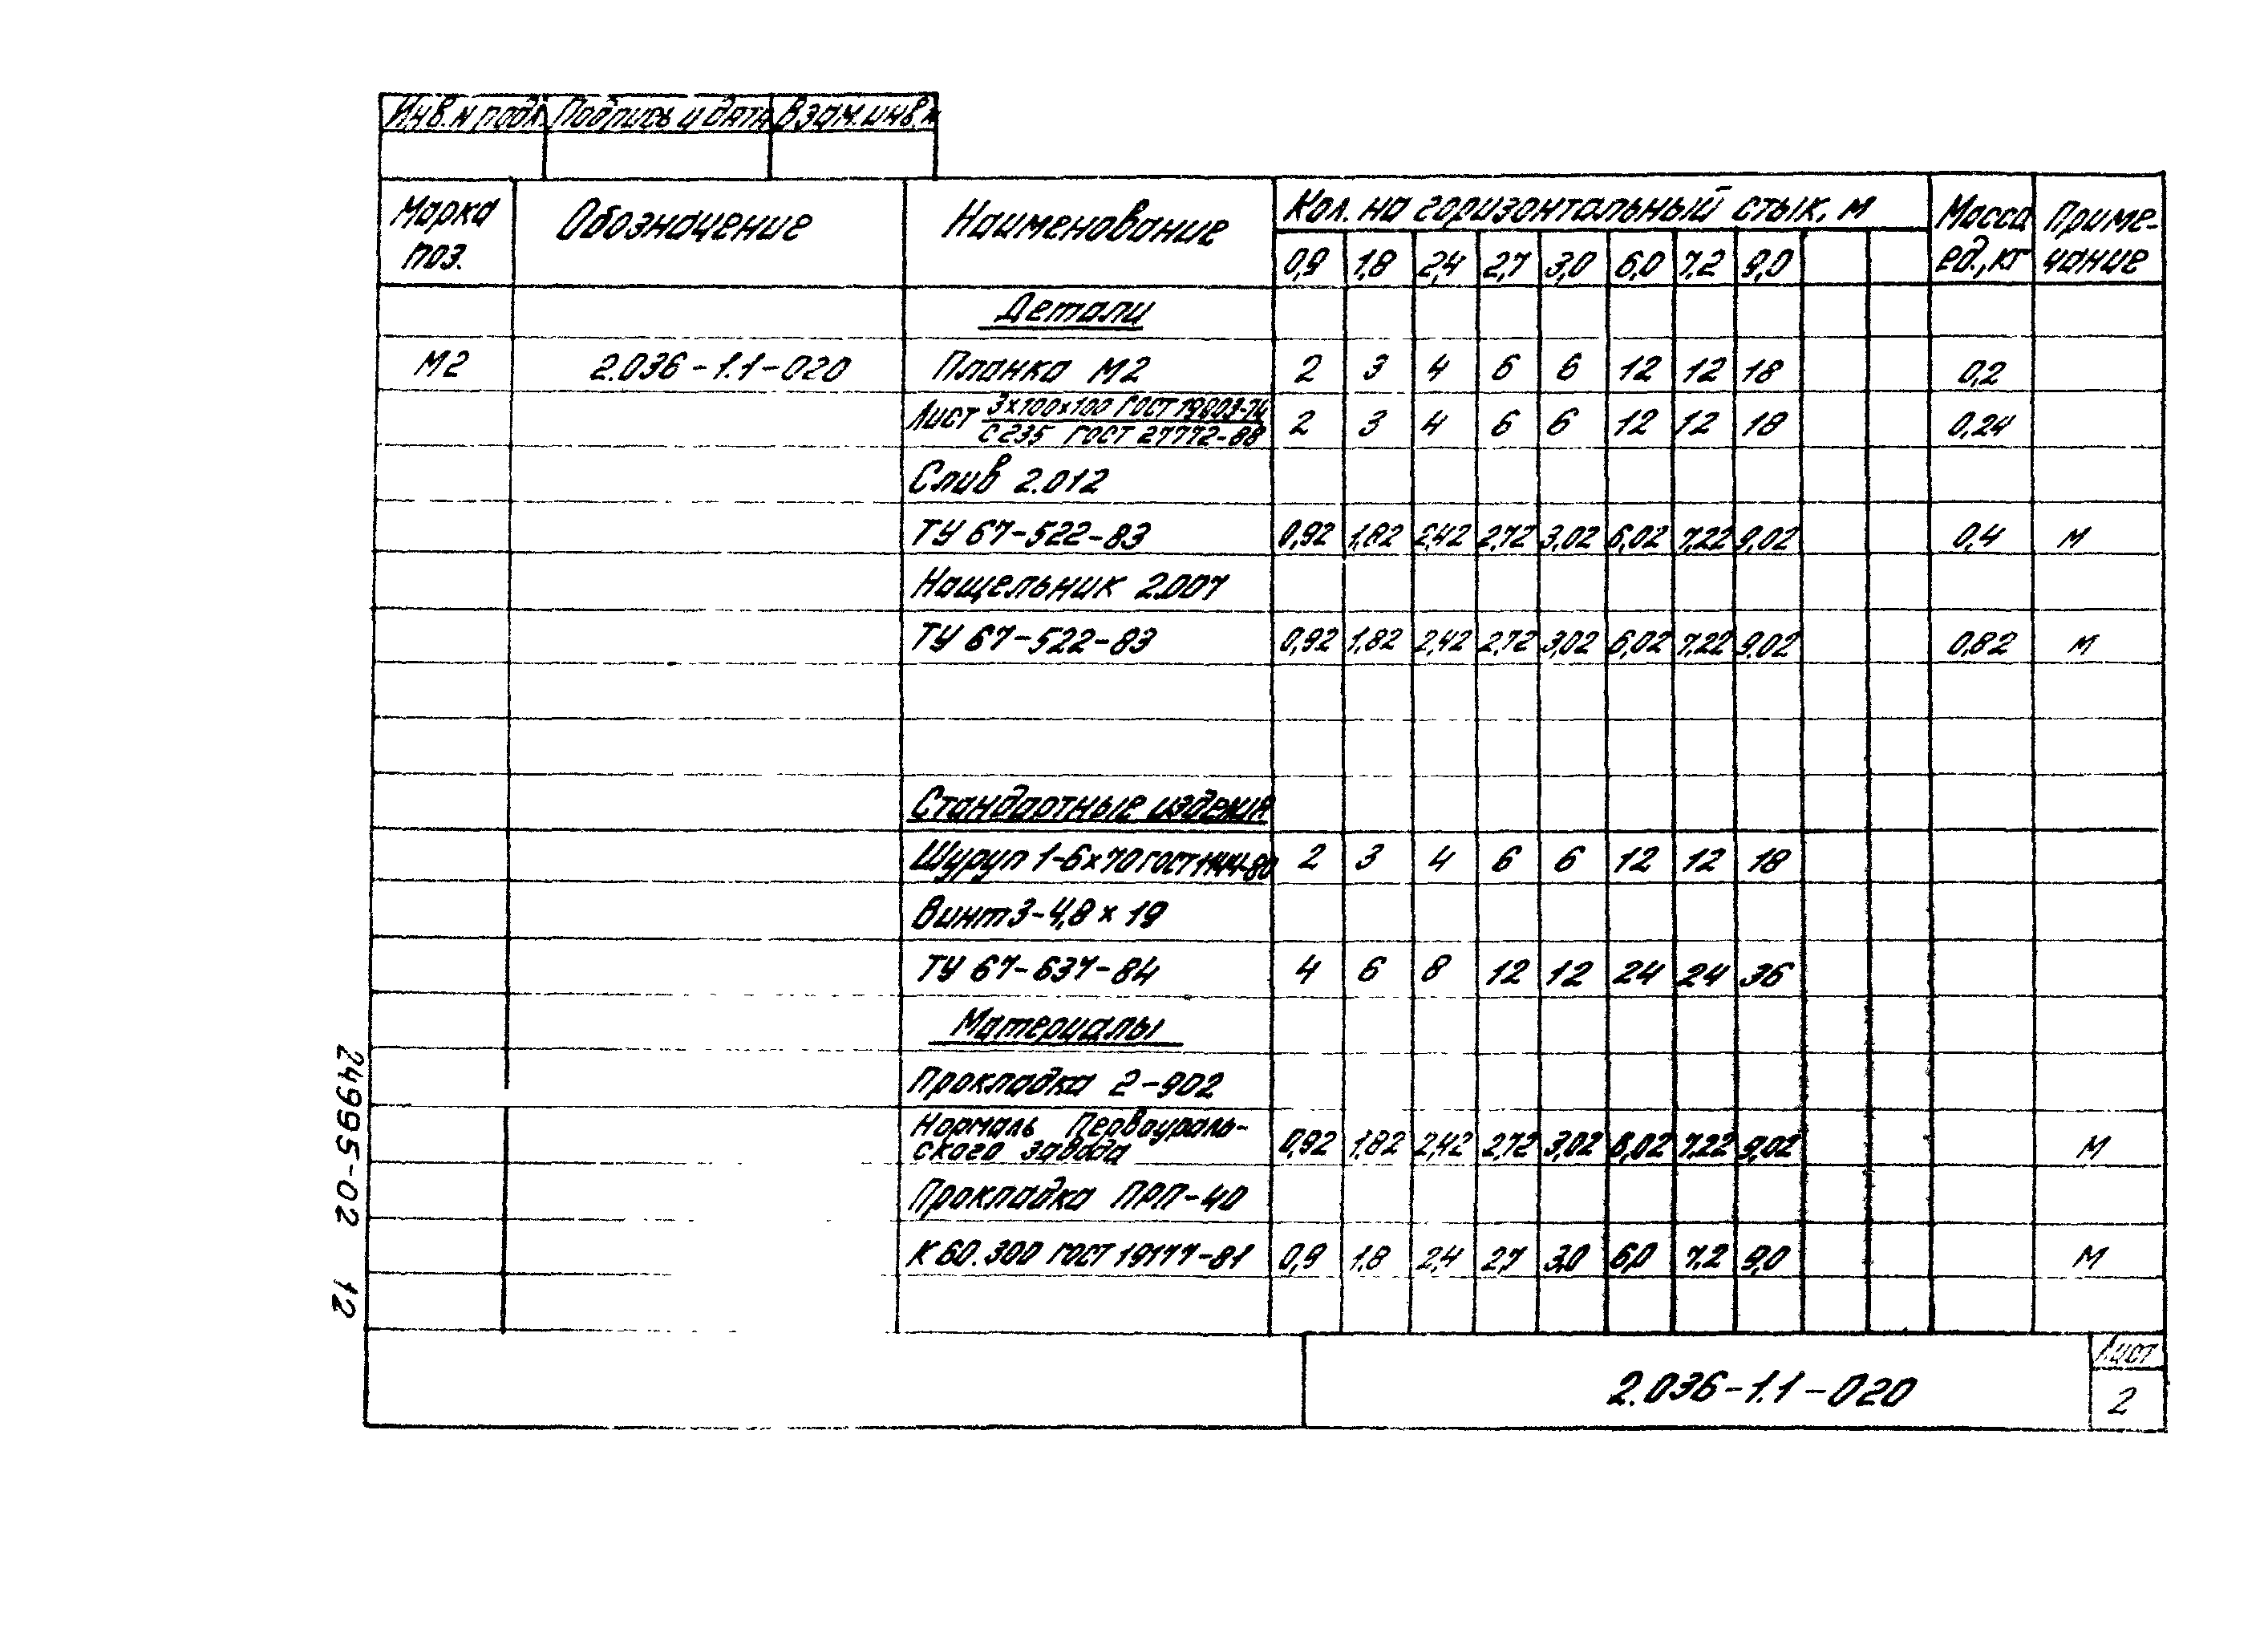 Инв.N подл. Подпись и дата Взам.инв.N
Марка поз. Обозначение Наименование Кол. на горизонтальный стык, м Масса ед.,кг Приме-чание
0,9 1,8 2,4 2,7 3,0 6,0 7,2 9,0
Детали
М2 2.036-1.1-020 Планка М2 2 3 4 6 6 12 12 18 0,2
Лист 3х100х100 ГОСТ 19903-74
С235 ГОСТ 27772-88 2 3 4 6 6 12 12 18 0,24
Слив 2.012
ТУ 67-522-83 0,92 1,82 2,42 2,72 3,02 6,02 7,22 9,02 0,4 м
Нащельник 2.007
ТУ 67-522-83 0,92 1,82 2,42 2,72 3,02 6,02 7,22 9.02 0,82 м
Стандартные изделия
Шуруп 1-6х70 ГОСТ 1144-80 2 3 4 6 6 12 12 18
Винт 3-4,8 х 19
ТУ 67-637-84 4 6 8 12 12 24 24 36
Материалы
Прокладка 2-902
Нормаль Первоураль-
ского завода 0,92 1,82 2,42 2,72 3,02 6,02 7,22 9,02 м
Прокладка ПРП-40
К 60.300 ГОСТ 19177-81 0,9 1,8 2,4 2,7 3,0 6,0 7,2 9,0 м
2.036-1.1-020
Лист
2
24995-02 12